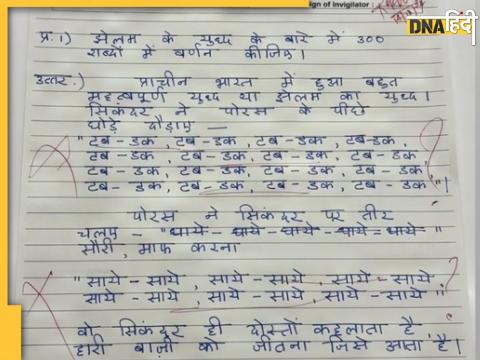 ign of Invigilator :
DNA हिंदी
प्र. 1) झेलम के युध्द के बारे में 300
शब्दों में बर्णन कीजिए।
उत्तर.) प्राचीन भारत में हुआ बहुत
महत्वपूर्ण युध्द था झेलम का युध्द।
सिकंदर ने पोरस के पीछे
घोड़े दौड़ाए —
"टब-डक, टब-डक, टब-डक, टब-डक,
टब-डक, टब-डक, टब-डक, टब-डक
टब-डक, टब-डक, टब-डक, टब-डक
टब-डक, टब-डक, टब-डक, टब-डक"।
पोरस ने सिकंदर पर तीर
चलाए - "धाये-धाये-धाये-धाये-धाये"
सौरी, माफ करना
"साये-साये, साये-साये, साये-साये
साये-साये, साये-साये, साये-साये"
वो सिकंदर ही दोस्तों कहलाता है,
हारी बाज़ी को जीतना जिसे आता है।